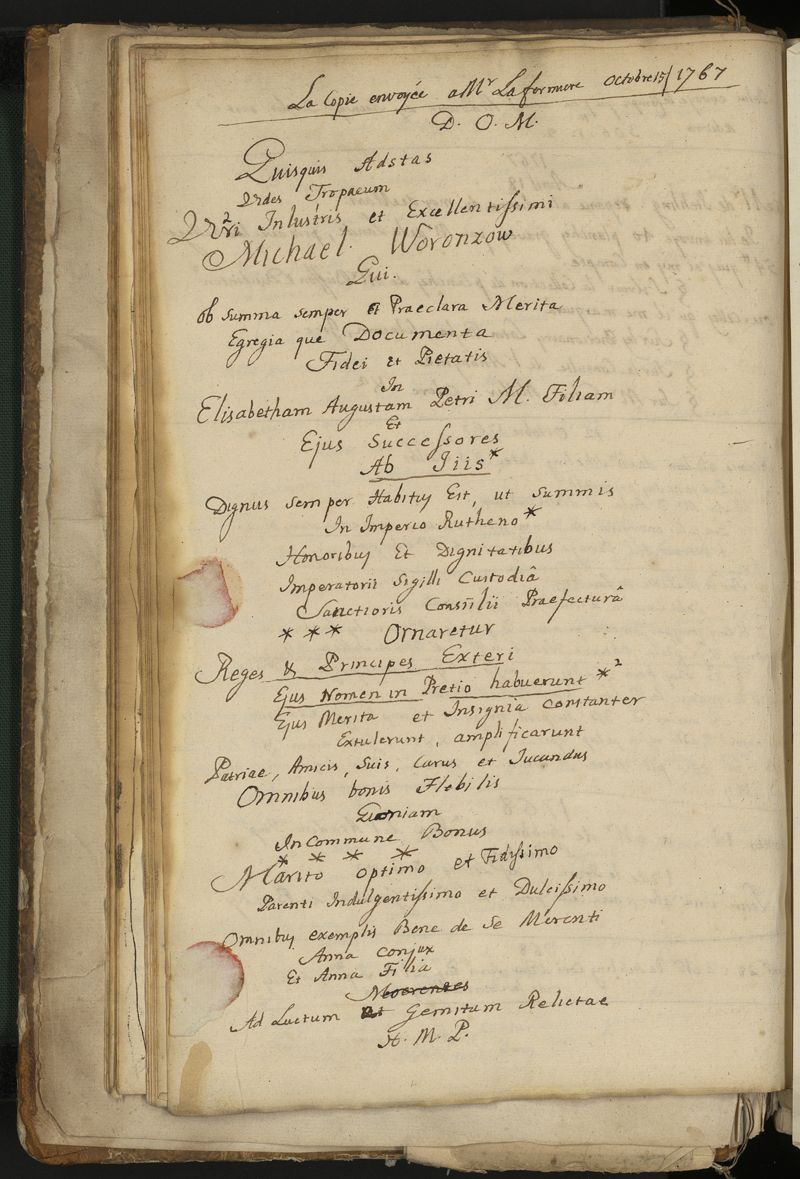 La Copie envoyée a Mr Lafermiere Octobre 15/1767
D. O. M.
Quisquis Adstas
Vides Tropaeum
Viri Inlustris et Excellentissimi
Michael. Woronzow
Qui.
ob Summa semper et Praeclara Merita
Egregia que Documenta
Fidei et Pietatis
In
Elisabetham Augustam Petri M. Filiam
Et
Ejus Successores
Ab Iiis*
Dignus semper Habitus Est, ut Summis
In Imperio Rutheno*
Honoribus Et Dignitatibus
Imperatorii Sigilli Custodiâ
Sanctioris Consilii Praefecturâ
* * * Ornaretur
Reges & Principes Exteri
Ejus Nomen in Pretio habuerunt *2
Ejus Merita et Insignia Constanter
Extulerunt, amplificarunt
Patriae, Amicis, Suis, Carus et Jucundus
Omnibus bonis Flebilis
Quoniam
In Commune Bonus
* * * *
Marito optimo et Fidissimo
Parenti Indulgentissimo et Dulcissimo
Omnibus exemplis Bene de Se Merenti
Anna Conjux
Et Anna Filia
Moerentes
Ad Luctum et Gemitum Relictae
H. M. P.